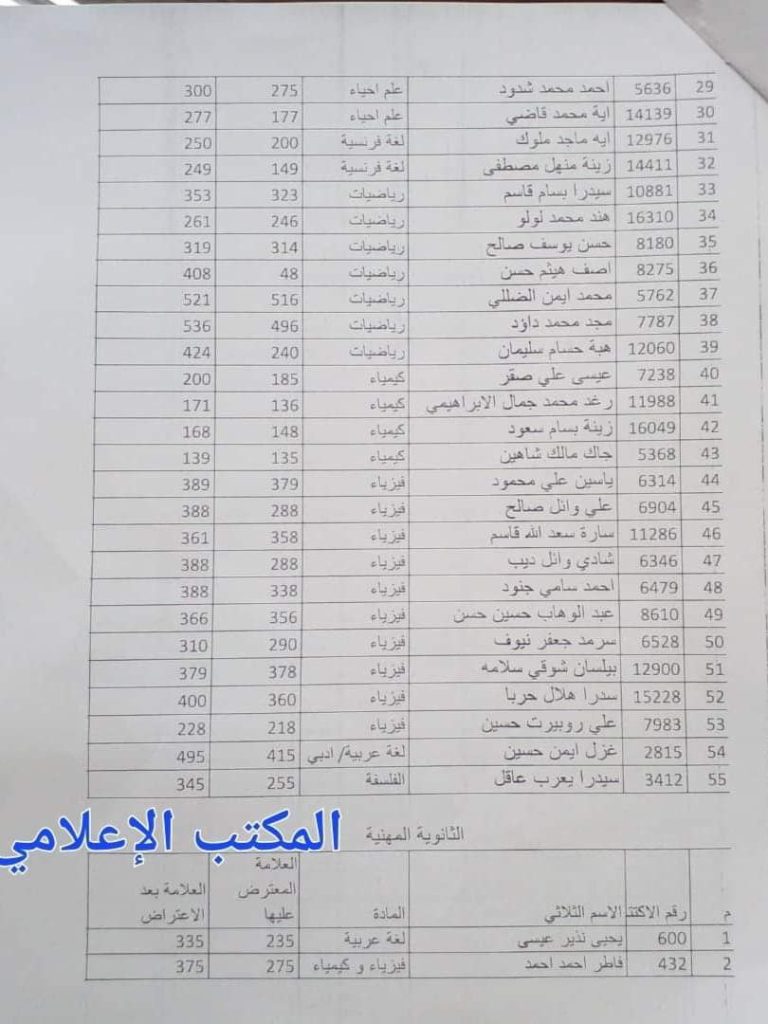 29 5636 احمد محمد شدود علم احياء 275 300
30 14139 اية محمد قاضي علم احياء 177 277
31 12976 ايه ماجد ملوك لغة فرنسية 200 250
32 14411 زينة منهل مصطفى لغة فرنسية 149 249
33 10881 سيدرا بسام قاسم رياضيات 323 353
34 16310 هند محمد لولو رياضيات 246 261
35 8180 حسن يوسف صالح رياضيات 314 319
36 8275 اصف هيثم حسن رياضيات 48 408
37 5762 محمد ايمن الضللي رياضيات 516 521
38 7787 مجد محمد داؤد رياضيات 496 536
39 12060 هبة حسام سليمان رياضيات 240 424
40 7238 عيسى علي صقر كيمياء 185 200
41 11988 رغد محمد جمال الابراهيمي كيمياء 136 171
42 16049 زينة بسام سعود كيمياء 148 168
43 5368 جاك مالك شاهين كيمياء 135 139
44 6314 ياسين علي محمود فيزياء 379 389
45 6904 علي وائل صالح فيزياء 288 388
46 11286 سارة سعد الله قاسم فيزياء 358 361
47 6346 شادي وائل ديب فيزياء 288 388
48 6479 احمد سامي جنود فيزياء 338 388
49 8610 عبد الوهاب حسين حسن فيزياء 356 366
50 6528 سرمد جعفر نيوف فيزياء 290 310
51 12900 بيلسان شوقي سلامه فيزياء 378 379
52 15228 سدرا هلال حربا فيزياء 360 400
53 7983 علي روبيرت حسين فيزياء 218 228
54 2815 غزل ايمن حسين لغة عربية/ ادبي 415 495
55 3412 سيدرا يعرب عاقل الفلسفة 255 345
المكتب الإعلامي
الثانوية المهنية
م رقم الاكتت الاسم الثلاثي المادة العلامة المعترض عليها العلامة بعد الاعتراض
1 600 يحيى نذير عيسى لغة عربية 235 335
2 432 فاطر احمد احمد فيزياء و كيمياء 275 375